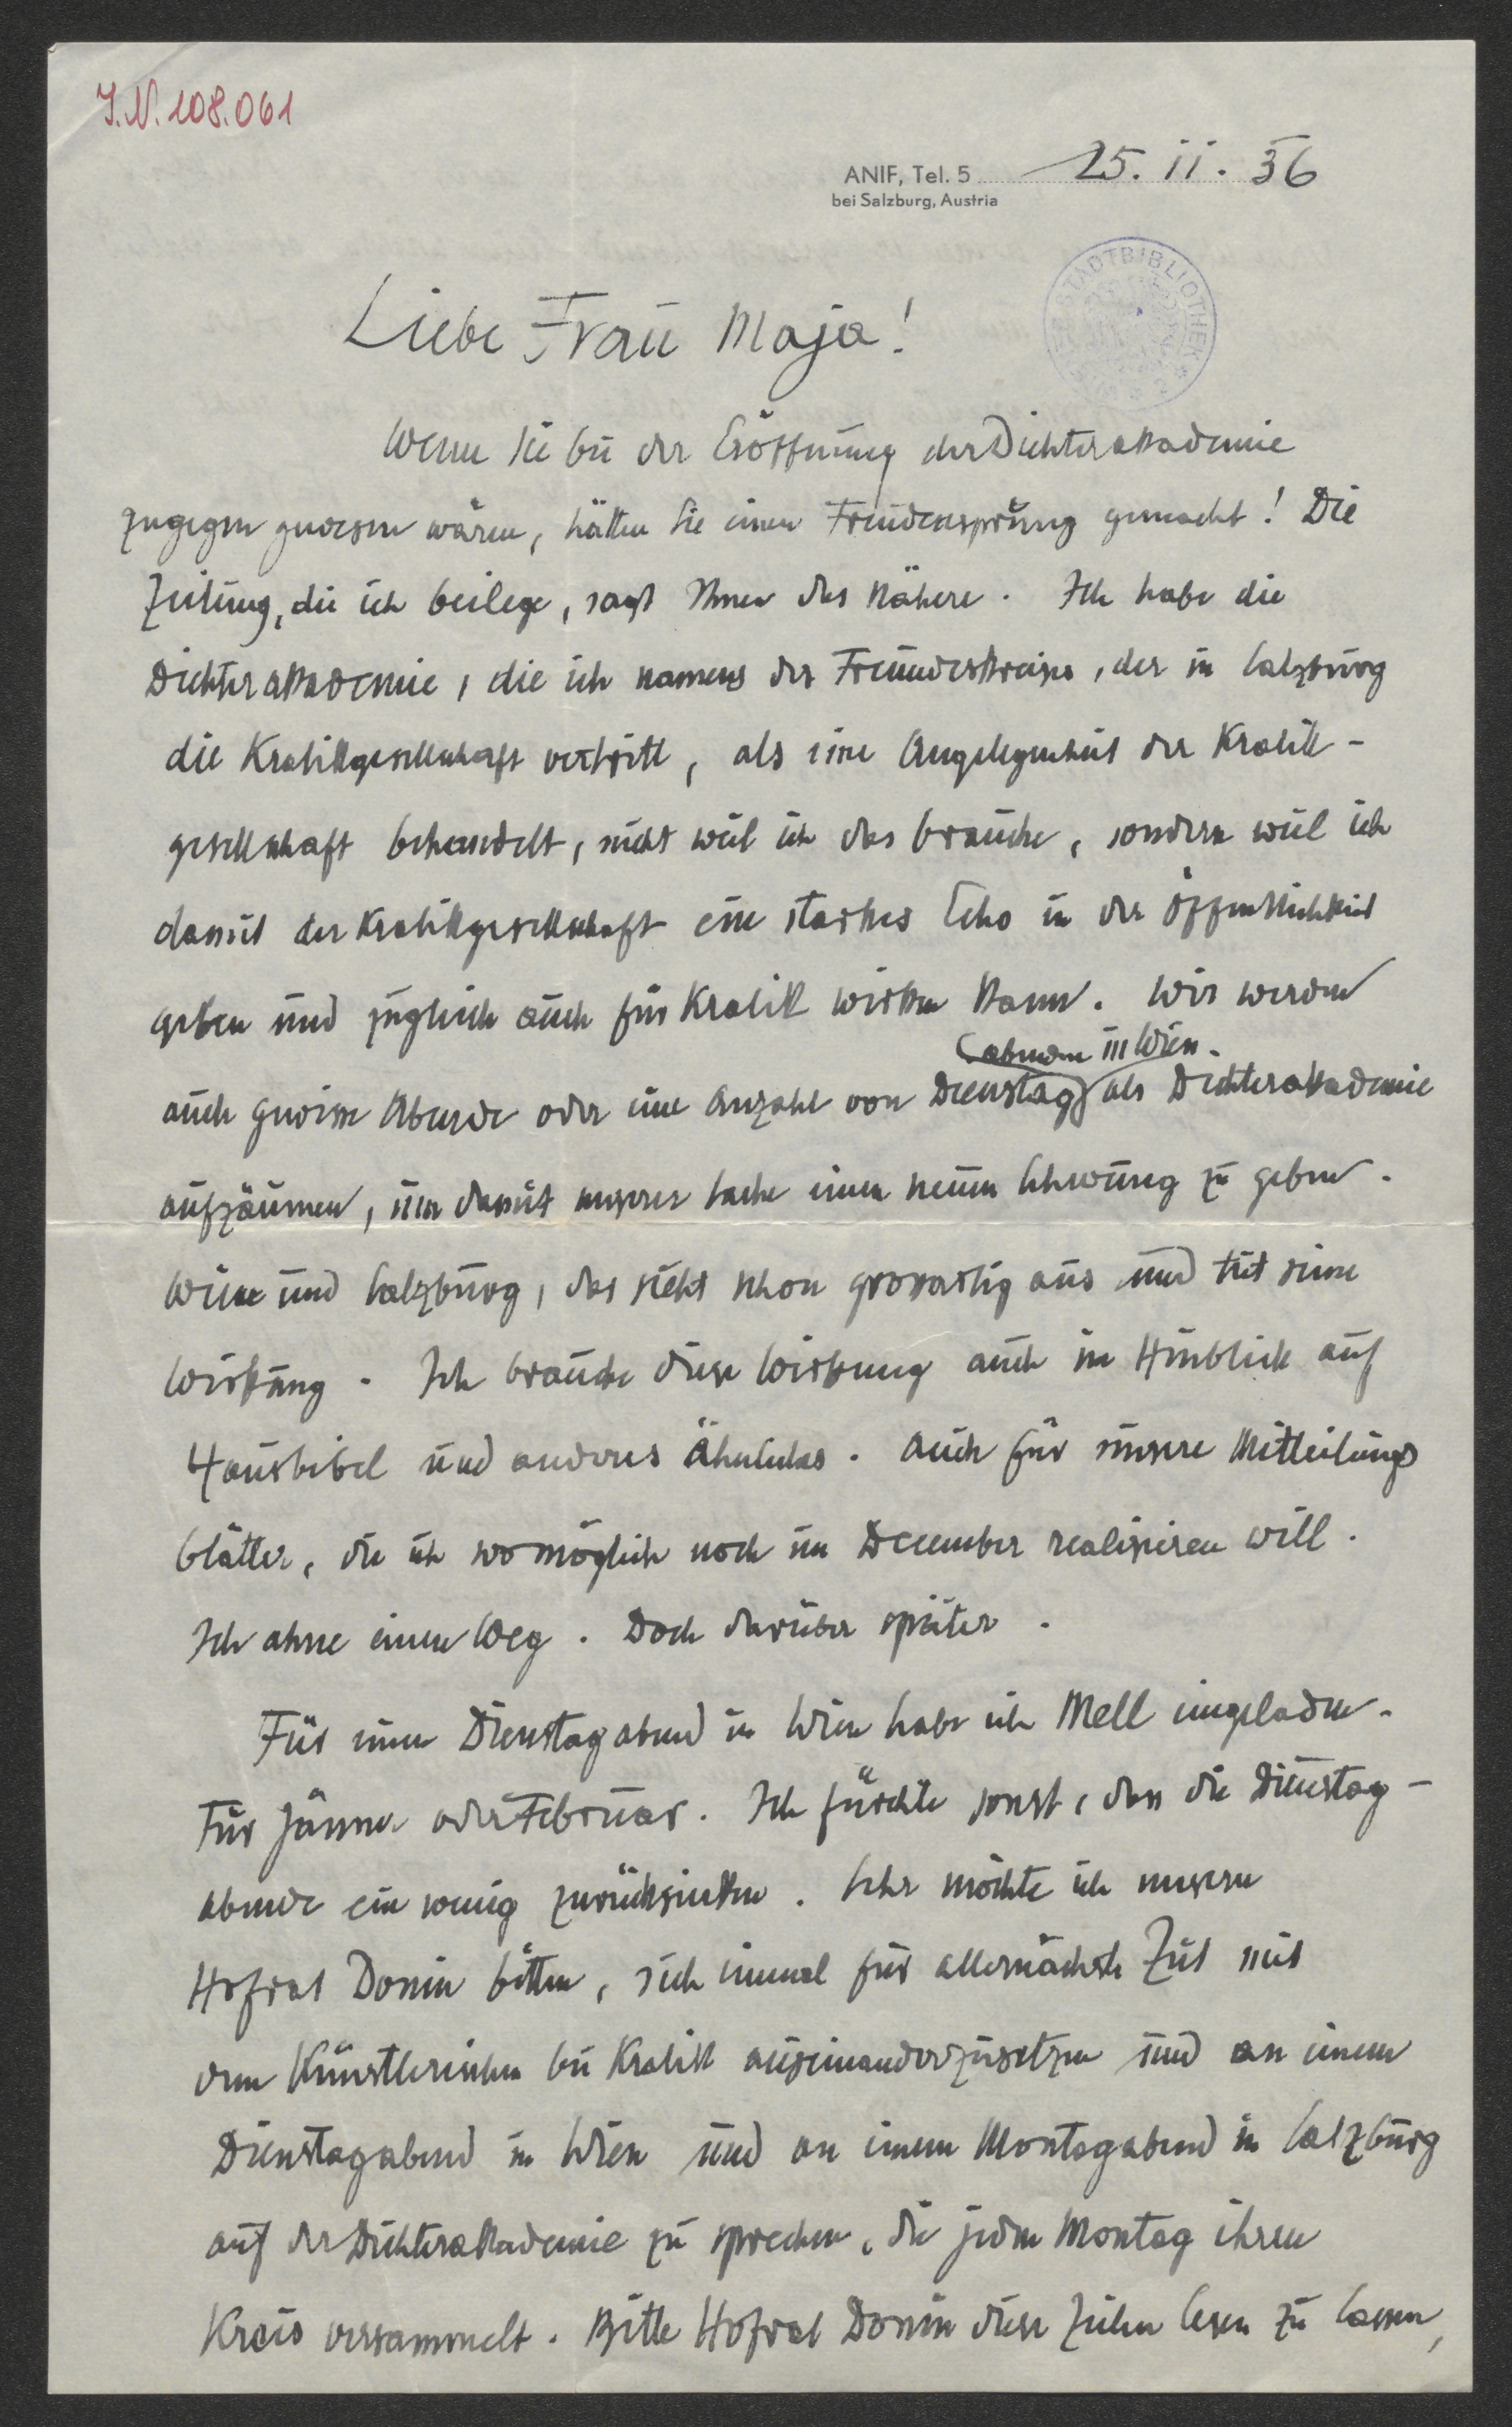 J.N. 108.061
ANIF, Tel. 5 25. 11. 36
bei Salzburg, Austria
STADTBIBLIOTHEK
Liebe Frau Maja!
Wenn Sie bei der Eröffnung der Dichterakademie
zugegen gewesen wären, hätten Sie einen Freudensprung gemacht! Die
Zeitung, die ich beilege, sagt Ihnen das Nähere. Ich habe die
Dichterakademie, die ich namens des Freundeskreises, der in Salzburg
die Kralikgesellschaft vertritt, als eine Angelegenheit der Kralik-
gesellschaft behandelt, nicht weil ich das brauche, sondern weil ich
damit der Kralikgesellschaft ein starkes Echo in der Öffentlichkeit
geben und zugleich auch für Kralik wirken kann. Wir werden
abenden in Wien
auch gewisse Abende oder eine Anzahl von Dienstag als Dichterakademie
aufzäumen, um damit unserer Sache einen neuen Schwung zu geben.
Wien und Salzburg, das sieht schon grossartig aus und tut seine
Wirkung. Ich brauche diese Wirkung auch im Hinblick auf
Hausbibel und anderes Ähnliches. Auch für unsere Mitteilungs
blätter, die ich womöglich noch im December realisieren will.
Ich ahne einen Weg. Doch darüber später.
Für einen Dienstagabend in Wien habe ich Mell eingeladen.
Für Jänner oder Februar. Ich fürchte sonst, dass die Dienstag-
abende ein wenig zurücksinken. Sehr möchte ich unseren
Hofrat Donin bitten, sich einmal für allernächste Zeit mit
dem Künstlerischen bei Kralik auseinanderzusetzen und an einem
Dienstagabend in Wien und an einem Montagabend in Salzburg
auf der Dichterakademie zu sprechen, die jeden Montag ihren
Kreis versammelt. Bitte Hofrat Donin diese Zeilen lesen zu lassen,